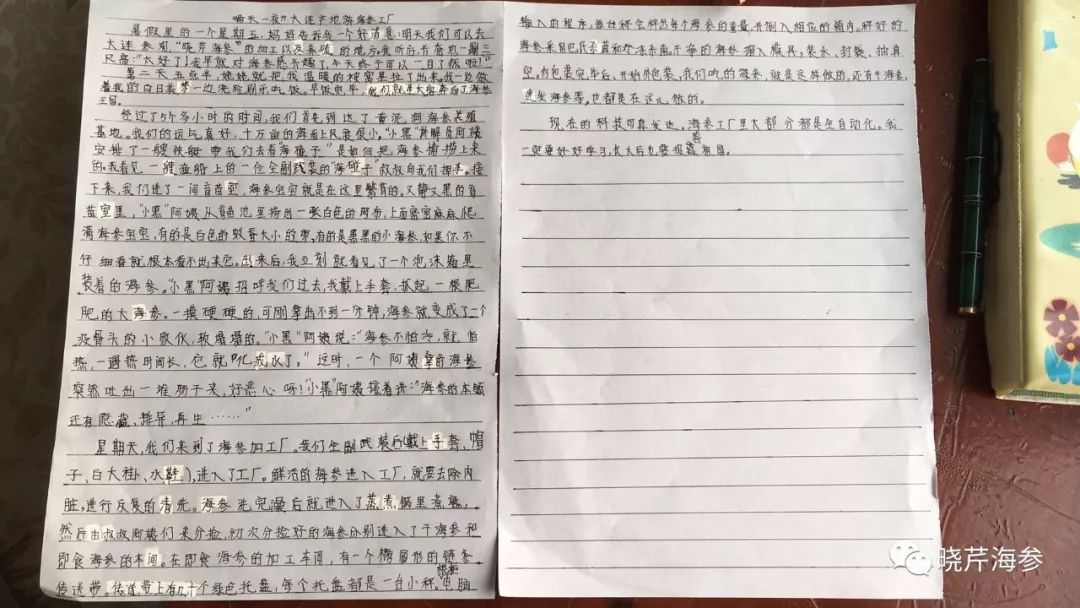 暑假里的一个星期五,妈妈告诉我一个好消息:明天我们可以去
大连参观"晓芹海参"的加工以及养殖的地方。我听后
尺高:"太好了!我早就对海参感兴趣了,今天终于可以一目了然啦!"
第二天五点半,姥姥就把我温暖的被窝里拉了出来。我一边做
着我的白日梦一边洗脸刷牙吃饭。早饭完毕,我们就
王国。
经过了5个多小时的时间,我们首先到达了黄泥洞海参养殖
基地。我们的运气真好,十万亩的海面上风浪很小。"小黑"
安排了一艘快艇带我们去看"海碰子"是如何把海参捕捞上来
的。我看见一艘渔船上的一位全副武装的"海碰子"叔叔向我们挥手。接
下来,我们进了一间育苗室,海参宝宝就是在这里繁育的。又静又黑的育
苗室里,"小黑"阿姨从育苗池里捞出一张白色的网布,上面密密麻麻爬
满海参宝宝,有的是白色的蚁蚕大小的零,有的是黑黑的小海参,如果你不
仔细看就根本看不出来它。出来后,我立刻就看见了一个泡沫箱里
装着的海参。"小黑"阿姨招呼我们过去,我戴上手套,抓起一根肥
肥的大海参。一摸硬硬的,可刚拿出不到一分钟,海参就变成了一个
没骨头的小家伙,软塌塌的。"小黑"阿姨说:"海参不怕冷,就怕
热,一遇热时间长,它就"化成水了。"这时,一个阿姨拿的海参
突然吐出一堆肠子来,好恶心呀!"小黑"阿姨接着讲:"海参的本领
还有隐藏、排异、再生……"
星期天,我们来到了海参加工厂。我们全副武装后(戴上手套、帽
子、白大褂、水鞋),进入了工厂。鲜活的海参进入工厂,就要去除内
脏,进行反复的清洗。海参洗完澡后就进入了蒸煮锅里煮熟,
然后由叔叔阿姨们来分捡,初次分捡好的海参分别进入了干海参和
即食海参的车间。在即食海参的加工车间,有一个椭圆形的链条
传送带。传送带上有几十个绿色托盘,每个托盘都是一台小秤。根据电脑
输入的程序,每台秤会秤出每个海参的重量,并倒入相应的箱内。秤好的
海参装入模具,装水,封装,抽真
空。内包装完毕后,开始外包装。我们吃的海参,就是这样做的。还有干海参,
速发海参等,也都是在这儿做的。
现在的科技可真发达,海参工厂里大部分都是全自动化。我
一定要好好学习,长大后也要报答祖国。
晓芹海参